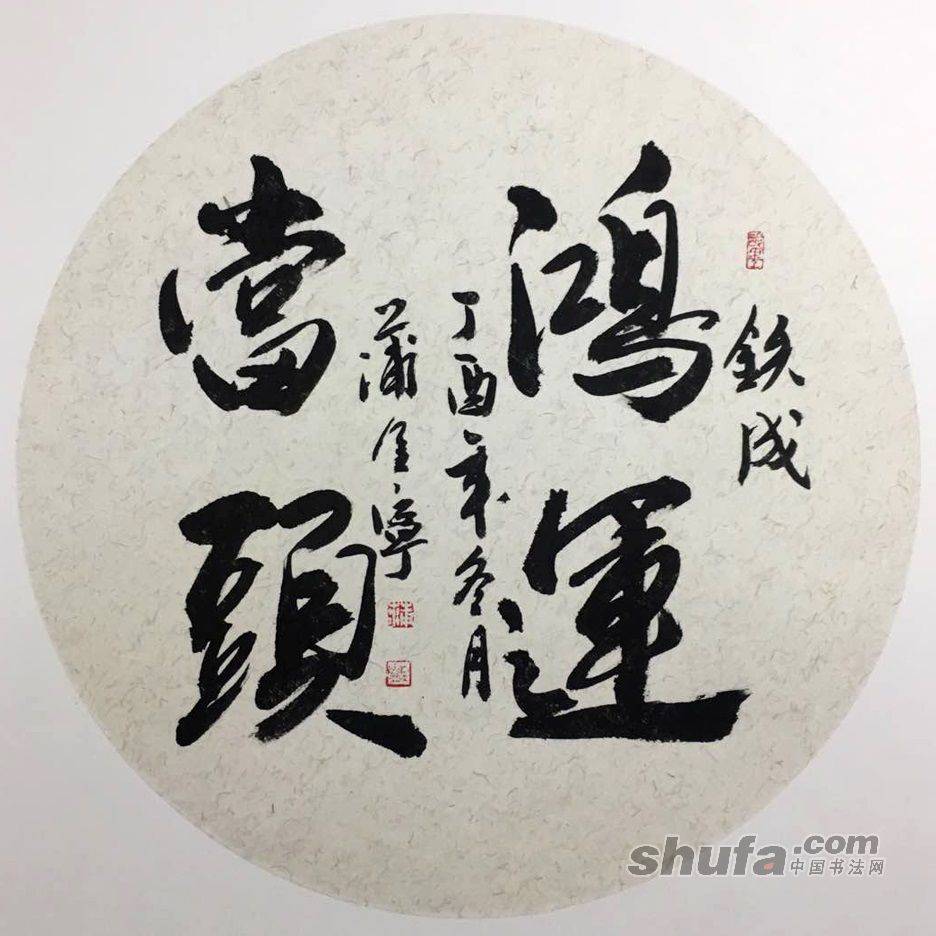 鉄成
鴻運
丁酉年冬月
蒲金寧
當頭
shufa.com
中国书法网